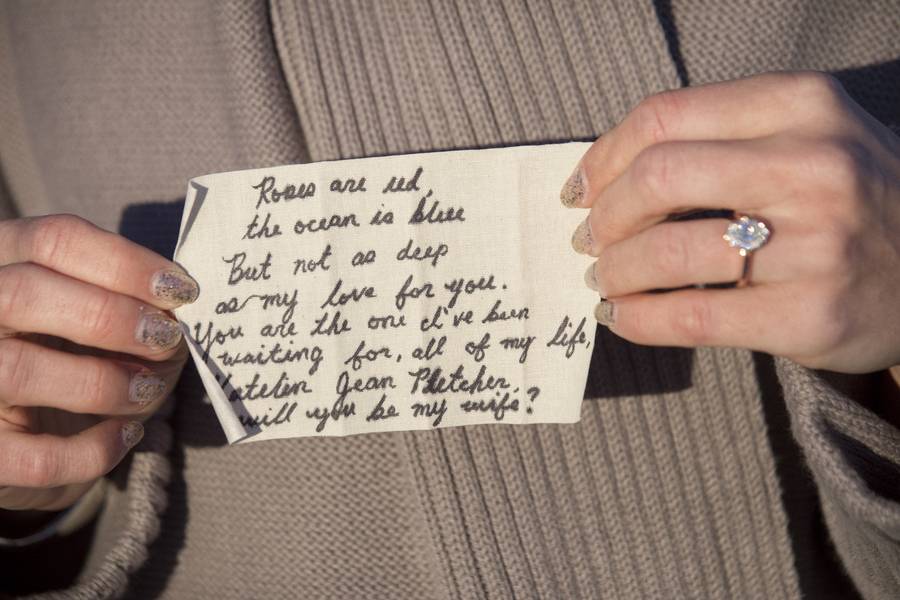 Roses are red,
the ocean is blue
But not as deep
as my love for you.
You are the one I've been
waiting for, all of my life,
Jean Pletcher,
will you be my wife?